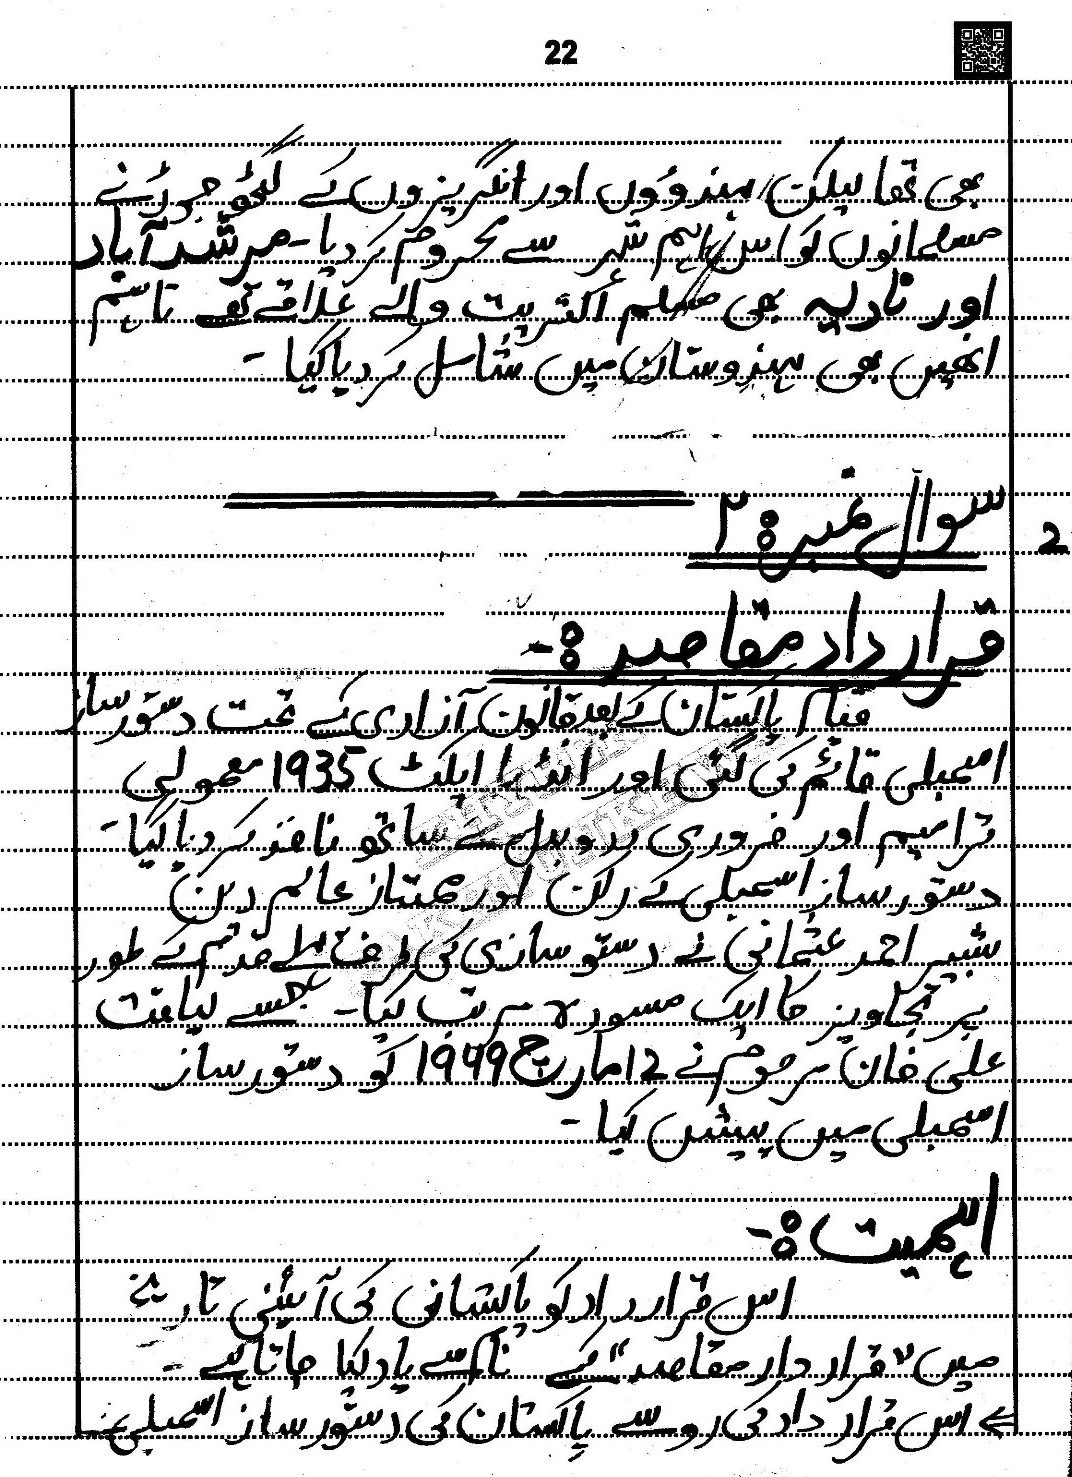 22
بھی تھا لیکن ہندوؤں اور انگریزوں کے گٹھ جوڑ نے
مسلمانوں کو اس اہم شہر سے محروم کر دیا۔ مرشد آباد
اور نادیہ بھی مسلم اکثریت والے علاقے تھے تاہم
انھیں بھی ہندوستان میں شامل کر دیا گیا۔
سوال نمبر ۲:
2
قرارداد مقاصد:-
قیام پاکستان کے بعد قانون آزادی کے تحت دستور ساز
اسمبلی قائم کی گئی اور انڈیا ایکٹ 1935 معمولی
ترامیم اور ضروری ردوبدل کے ساتھ نافذ کر دیا گیا۔
دستور ساز اسمبلی کے رکن اور ممتاز عالم دین
شبیر احمد عثمانی نے دستور سازی کی طرف پہلے قدم کے طور
پر تجاویز کا ایک مسودہ مرتب کیا۔ جسے لیاقت
علی خان مرحوم نے 12 مارچ 1949 کو دستور ساز
اسمبلی میں پیش کیا۔
اہمیت:-
اس قرارداد کو پاکستانی کی آئینی تاریخ
میں "قرار دار مقاصد" کے نام سے یاد کیا جاتا ہے۔
اس قرار داد کی رو سے پاکستان کی دستور ساز اسمبلی نے